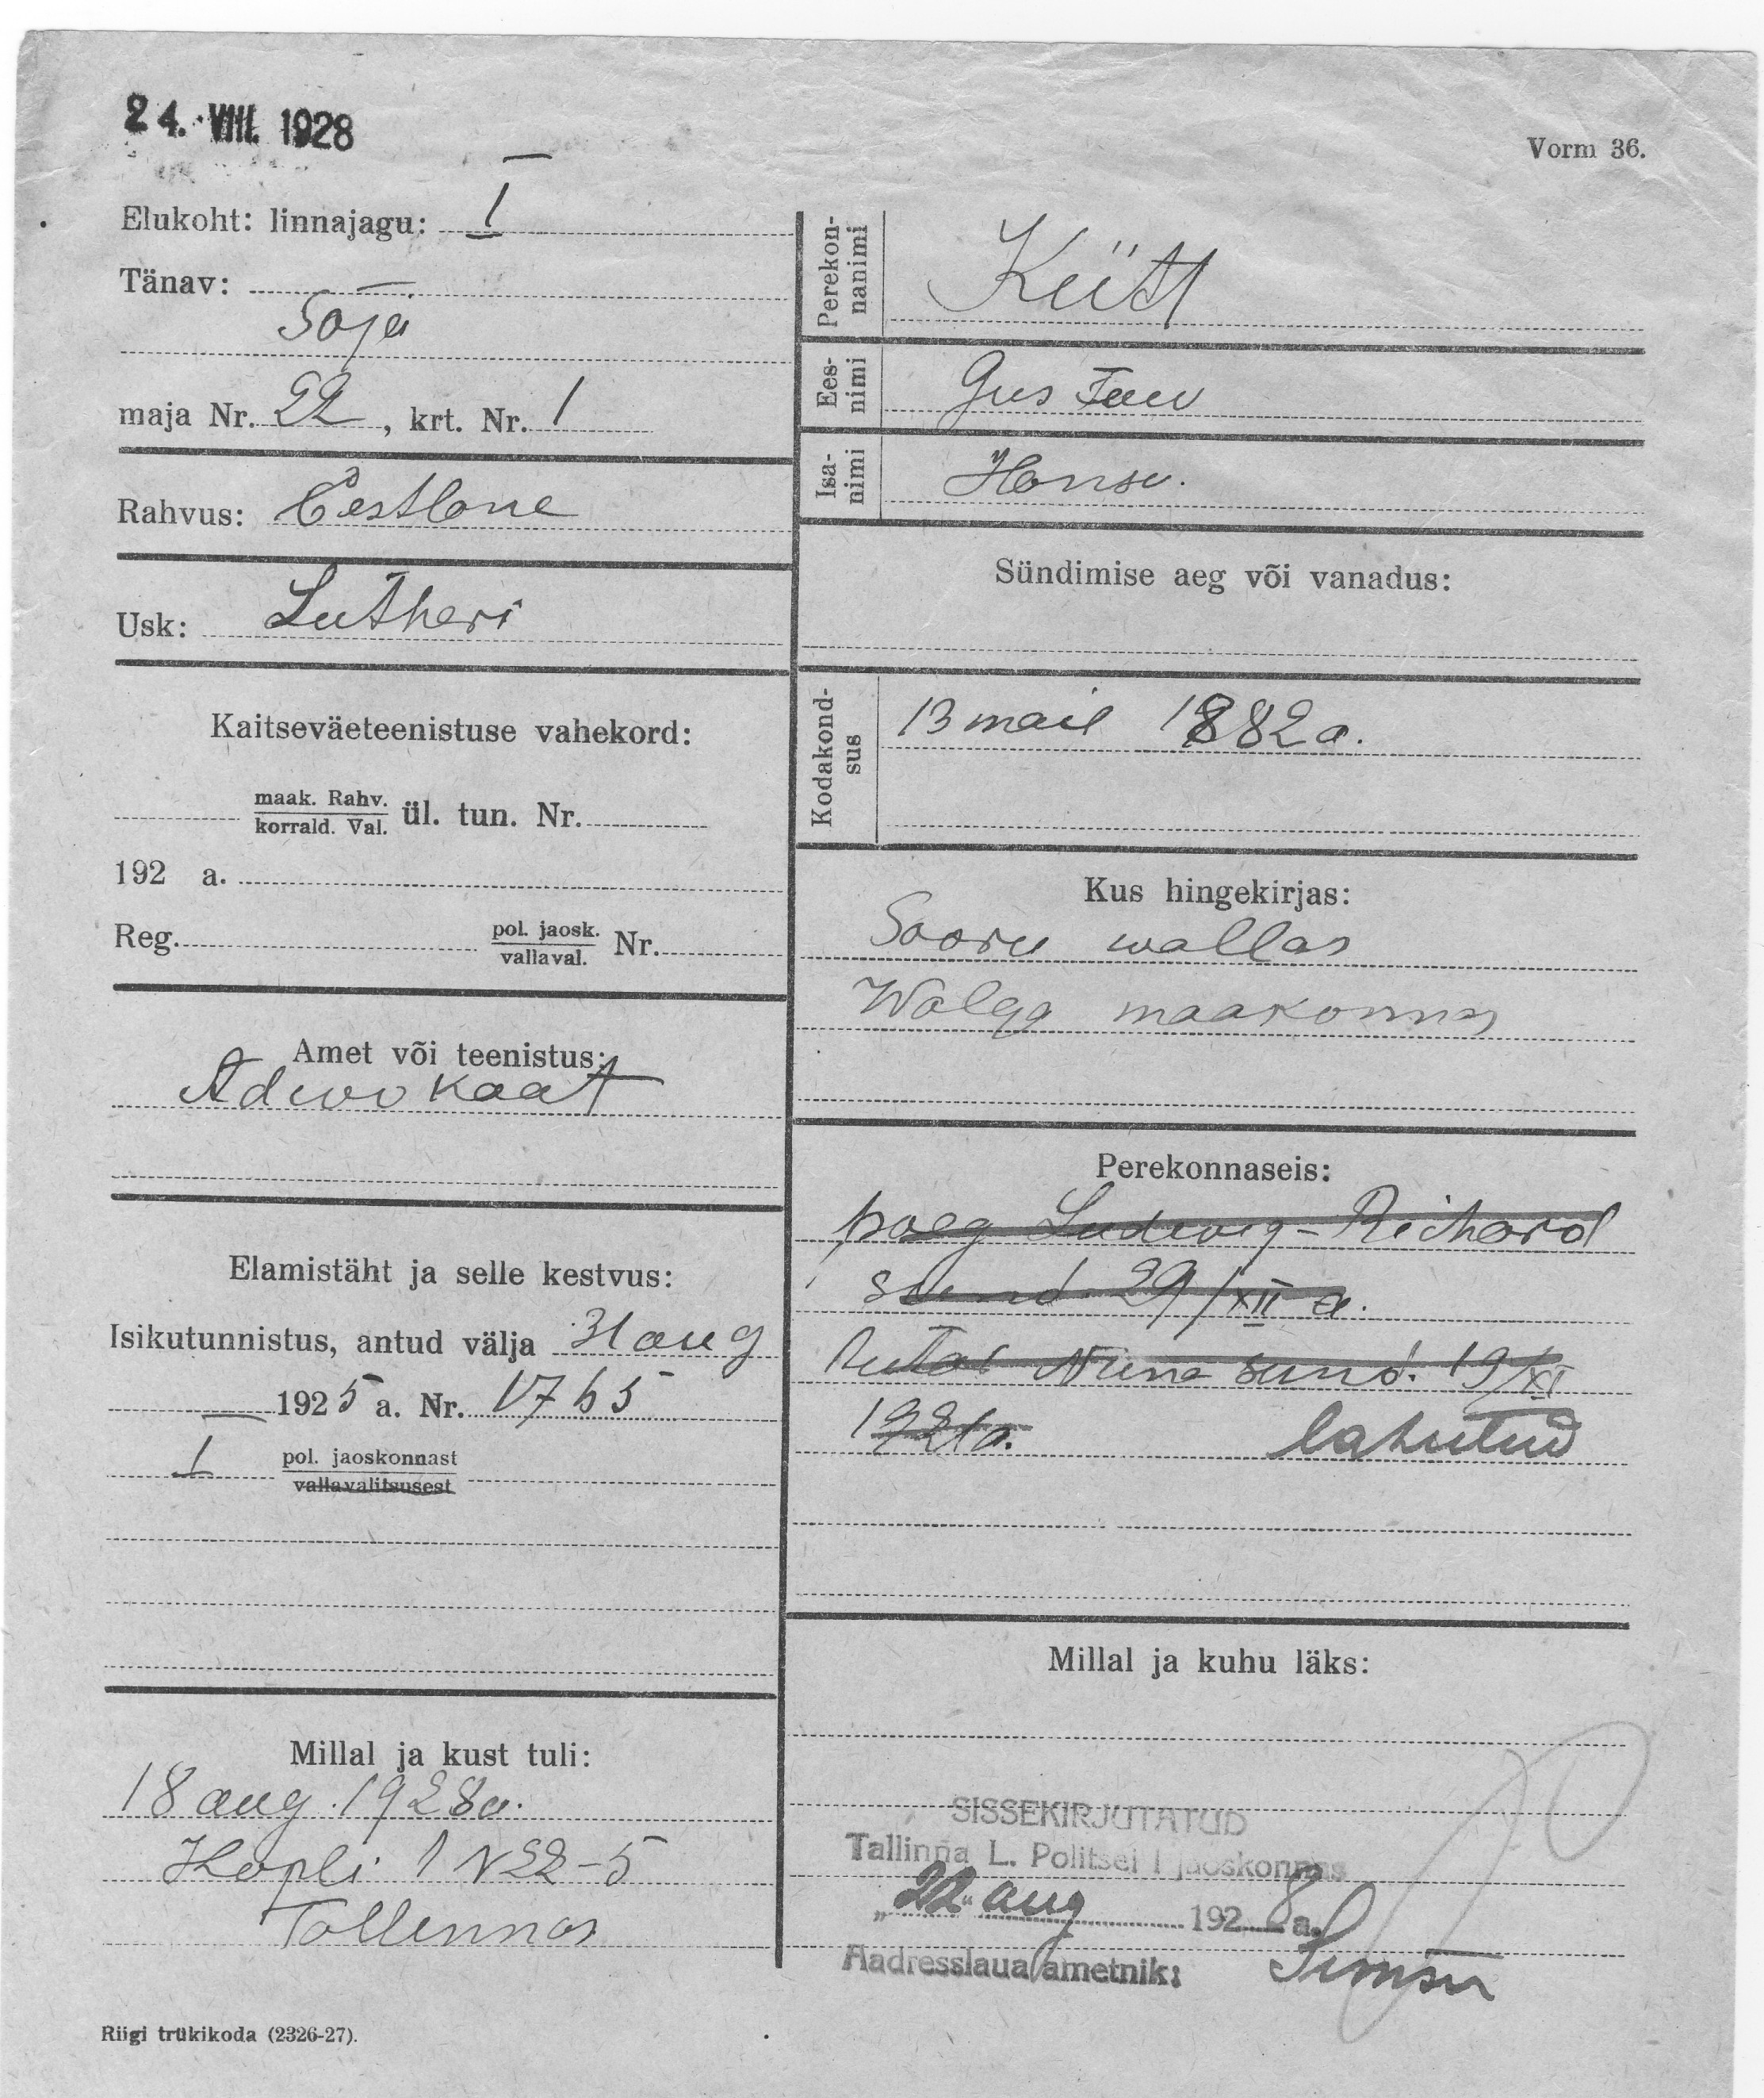 24. VIII. 1928
Vorm 36.
Elukoht: linnajagu: I
Tänav:
Sõja
maja Nr. 22, krt. Nr. 1
Rahvus: Eestlane
Usk: Lutheri
Kaitseväeteenistuse vahekord:
maak. Rahv.
korrald. Val. ül. tun. Nr.
192 a.
Reg. pol. jaosk.
vallaval. Nr.
Amet või teenistus:
Adwokaat
Elamistäht ja selle kestvus:
Isikutunnistus, antud välja 31 aug
1925 a. Nr.
I pol. jaoskonnast
vallavalitsusest
Millal ja kust tuli:
18 aug. 1928 a.
Kopli 1 N 22-5
Tallinnas
Riigi trükikoda (2326-27).
Perekon-
nanimi
Kütt
Ees-
nimi
Gustaw
Isa-
nimi
Hansu.
Sündimise aeg või vanadus:
Kodakond-
sus
13 mail 1882 a.
Kus hingekirjas:
Sooru wallas
Walga maakonnas
Perekonnaseis:
poeg Ludwig-Richard
sünd. 29/XII a.
sünd. 19/XI
1921 a. lahutud
Millal ja kuhu läks:
SISSEKIRJUTATUD
Tallinna L. Politsei I jaoskonnas
„22" aug 1928 a.
Aadresslaua ametnik: